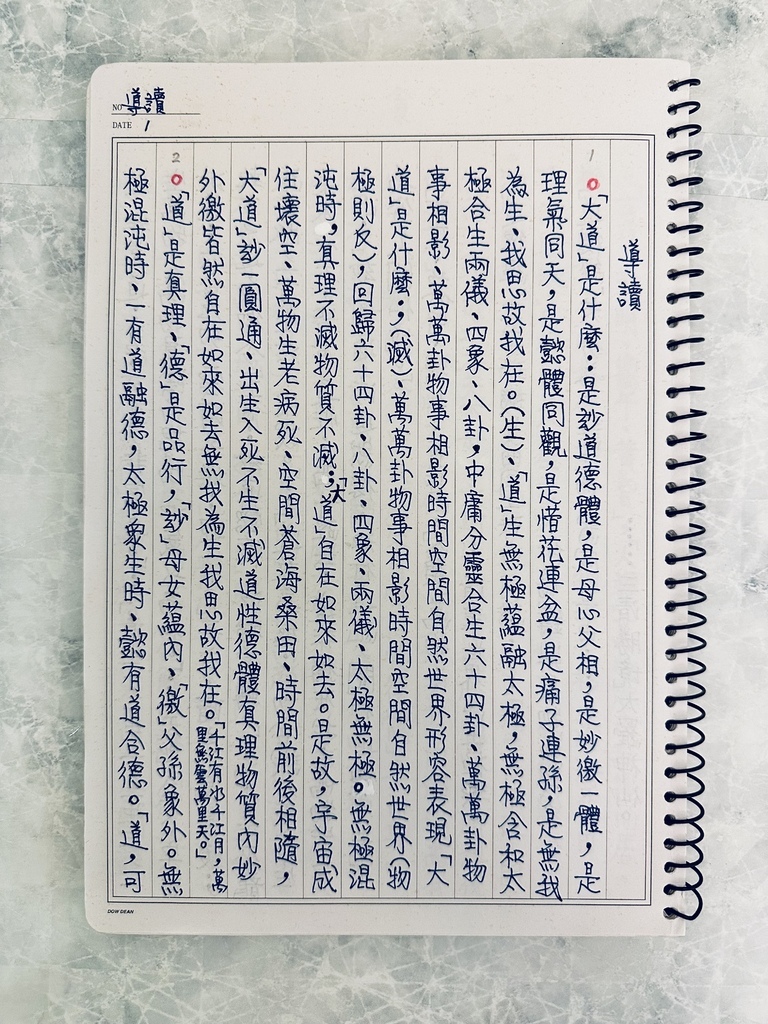 NO 導讀
DATE 1
導讀
1 「大道」是什麼：是玅道德體，是母心父相，是妙徼一體，是
理氣同天，是懿體同觀，是惜花連盆，是痛子連孫，是無我
為生、我思故我在。（生）、「道」生無極蘊融太極，無極含和太
極合生兩儀、四象、八卦，中庸分靈合生六十四卦、萬萬卦物
事相影、萬萬卦物事相影時間空間自然世界形容表現「大
道」是什麼；（滅）、萬萬卦物事相影時間空間自然世界（物
極則反），回歸六十四卦、八卦、四象、兩儀、太極無極。無極混
沌時，真理不滅物質不滅；「大道」自在如來如去。是故，宇宙成
住壞空、萬物生老病死、空間蒼海桑田、時間前後相隨，
「大道」玅一圓通、出生入死不生不滅道性德體真理物質內妙
外徼皆然自在如來如去無我為生我思故我在。「千江有水千江月，萬
里無雲萬里天。」
2 「道」是真理、「德」是品行，「玅」母女蘊內、「徼」父孫象外。無
極混沌時、一有道融德，太極衆生時、懿有道合德。「道，可
DOW DEAN